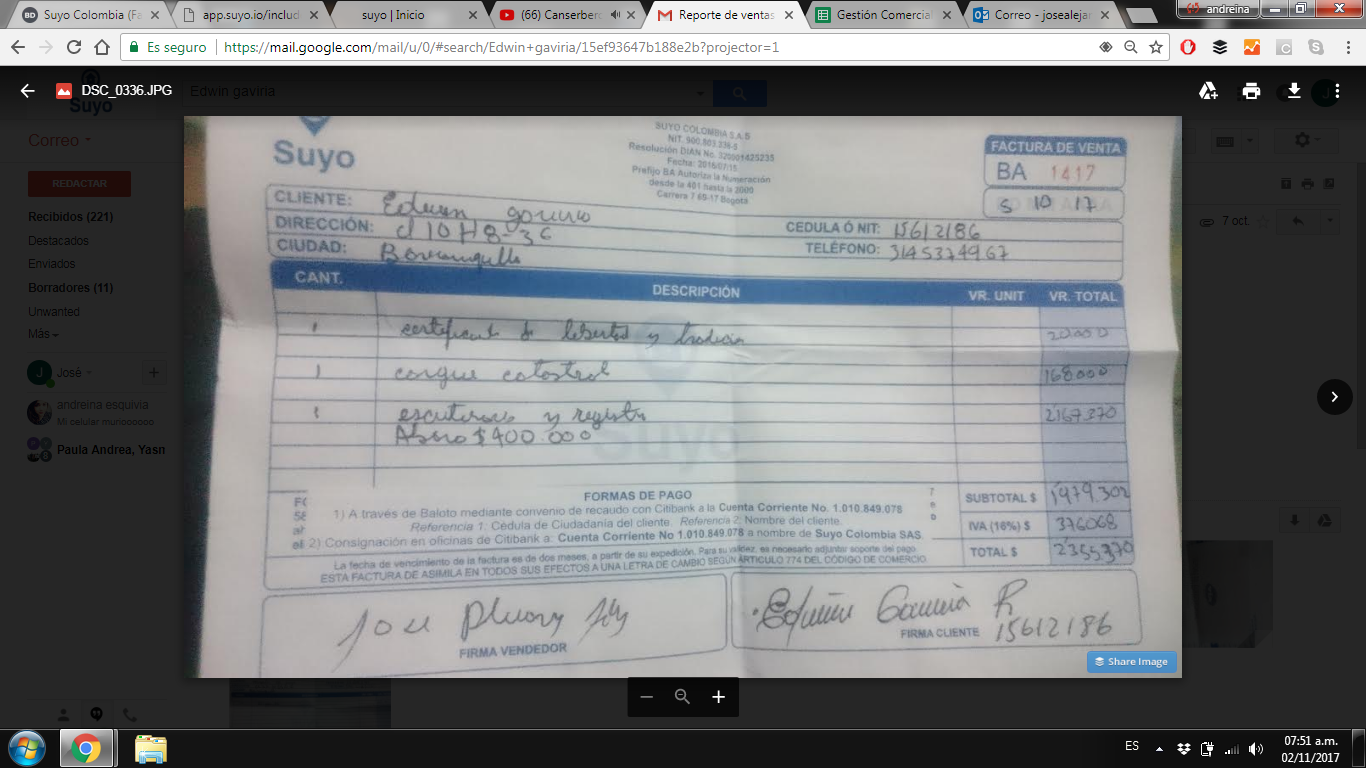 Suyo Colombia (Fa
app.suyo.io/includ
suyo | Inicio
(66) Canserbero
Reporte de ventas
Gestión Comercial
Correo - josealejar
andreina
Es seguro
https://mail.google.com/mail/u/0/#search/Edwin+gaviria/15ef93647b188e2b?projector=1
DSC_0336.JPG
Edwin gaviria
Suyo
Correo
REDACTAR
Recibidos (221)
Destacados
Enviados
Borradores (11)
Unwanted
Más
José
andreina esquivia
Mi celular muriooooo
Paula Andrea, Yasn
7 oct.
Suyo
SUYO COLOMBIA S.A.S
NIT. 900.803.238-8
Resolución DIAN No. 320001425235
Fecha: 2016/07/15
Prefijo BA Autoriza la Numeración
desde la 401 hasta la 2000
Carrera 7 65-17 Bogotá
FACTURA DE VENTA
BA 1417
5 10 17
CLIENTE:
DIRECCIÓN: cl 10 # 8-36
CIUDAD: Barranquilla
CEDULA Ó NIT: 15612186
TELÉFONO: 3145374967
CANT. DESCRIPCIÓN VR. UNIT VR. TOTAL
1 certificado de libertad y tradicion 20000
1 cargue catastral 168.000
1 escrituras y registro 2167.370
Abono $400.000
FORMAS DE PAGO
1) A través de Baloto mediante convenio de recaudo con Citibank a la Cuenta Corriente No. 1.010.849.078
Referencia 1: Cédula de Ciudadanía del cliente. Referencia 2: Nombre del cliente.
2) Consignación en oficinas de Citibank a: Cuenta Corriente No 1.010.849.078 a nombre de Suyo Colombia SAS
La fecha de vencimiento de la factura es de dos meses, a partir de su expedición. Para su validez, es necesario adjuntar soporte del pago.
ESTA FACTURA DE ASIMILA EN TODOS SUS EFECTOS A UNA LETRA DE CAMBIO SEGÚN ARTICULO 774 DEL CÓDIGO DE COMERCIO.
SUBTOTAL $ 1979.302
IVA (16%) $ 376068
TOTAL $ 2355370
Jose
FIRMA VENDEDOR
Gaviria R
FIRMA CLIENTE 15612186
Share Image
ES
07:51 a.m.
02/11/2017